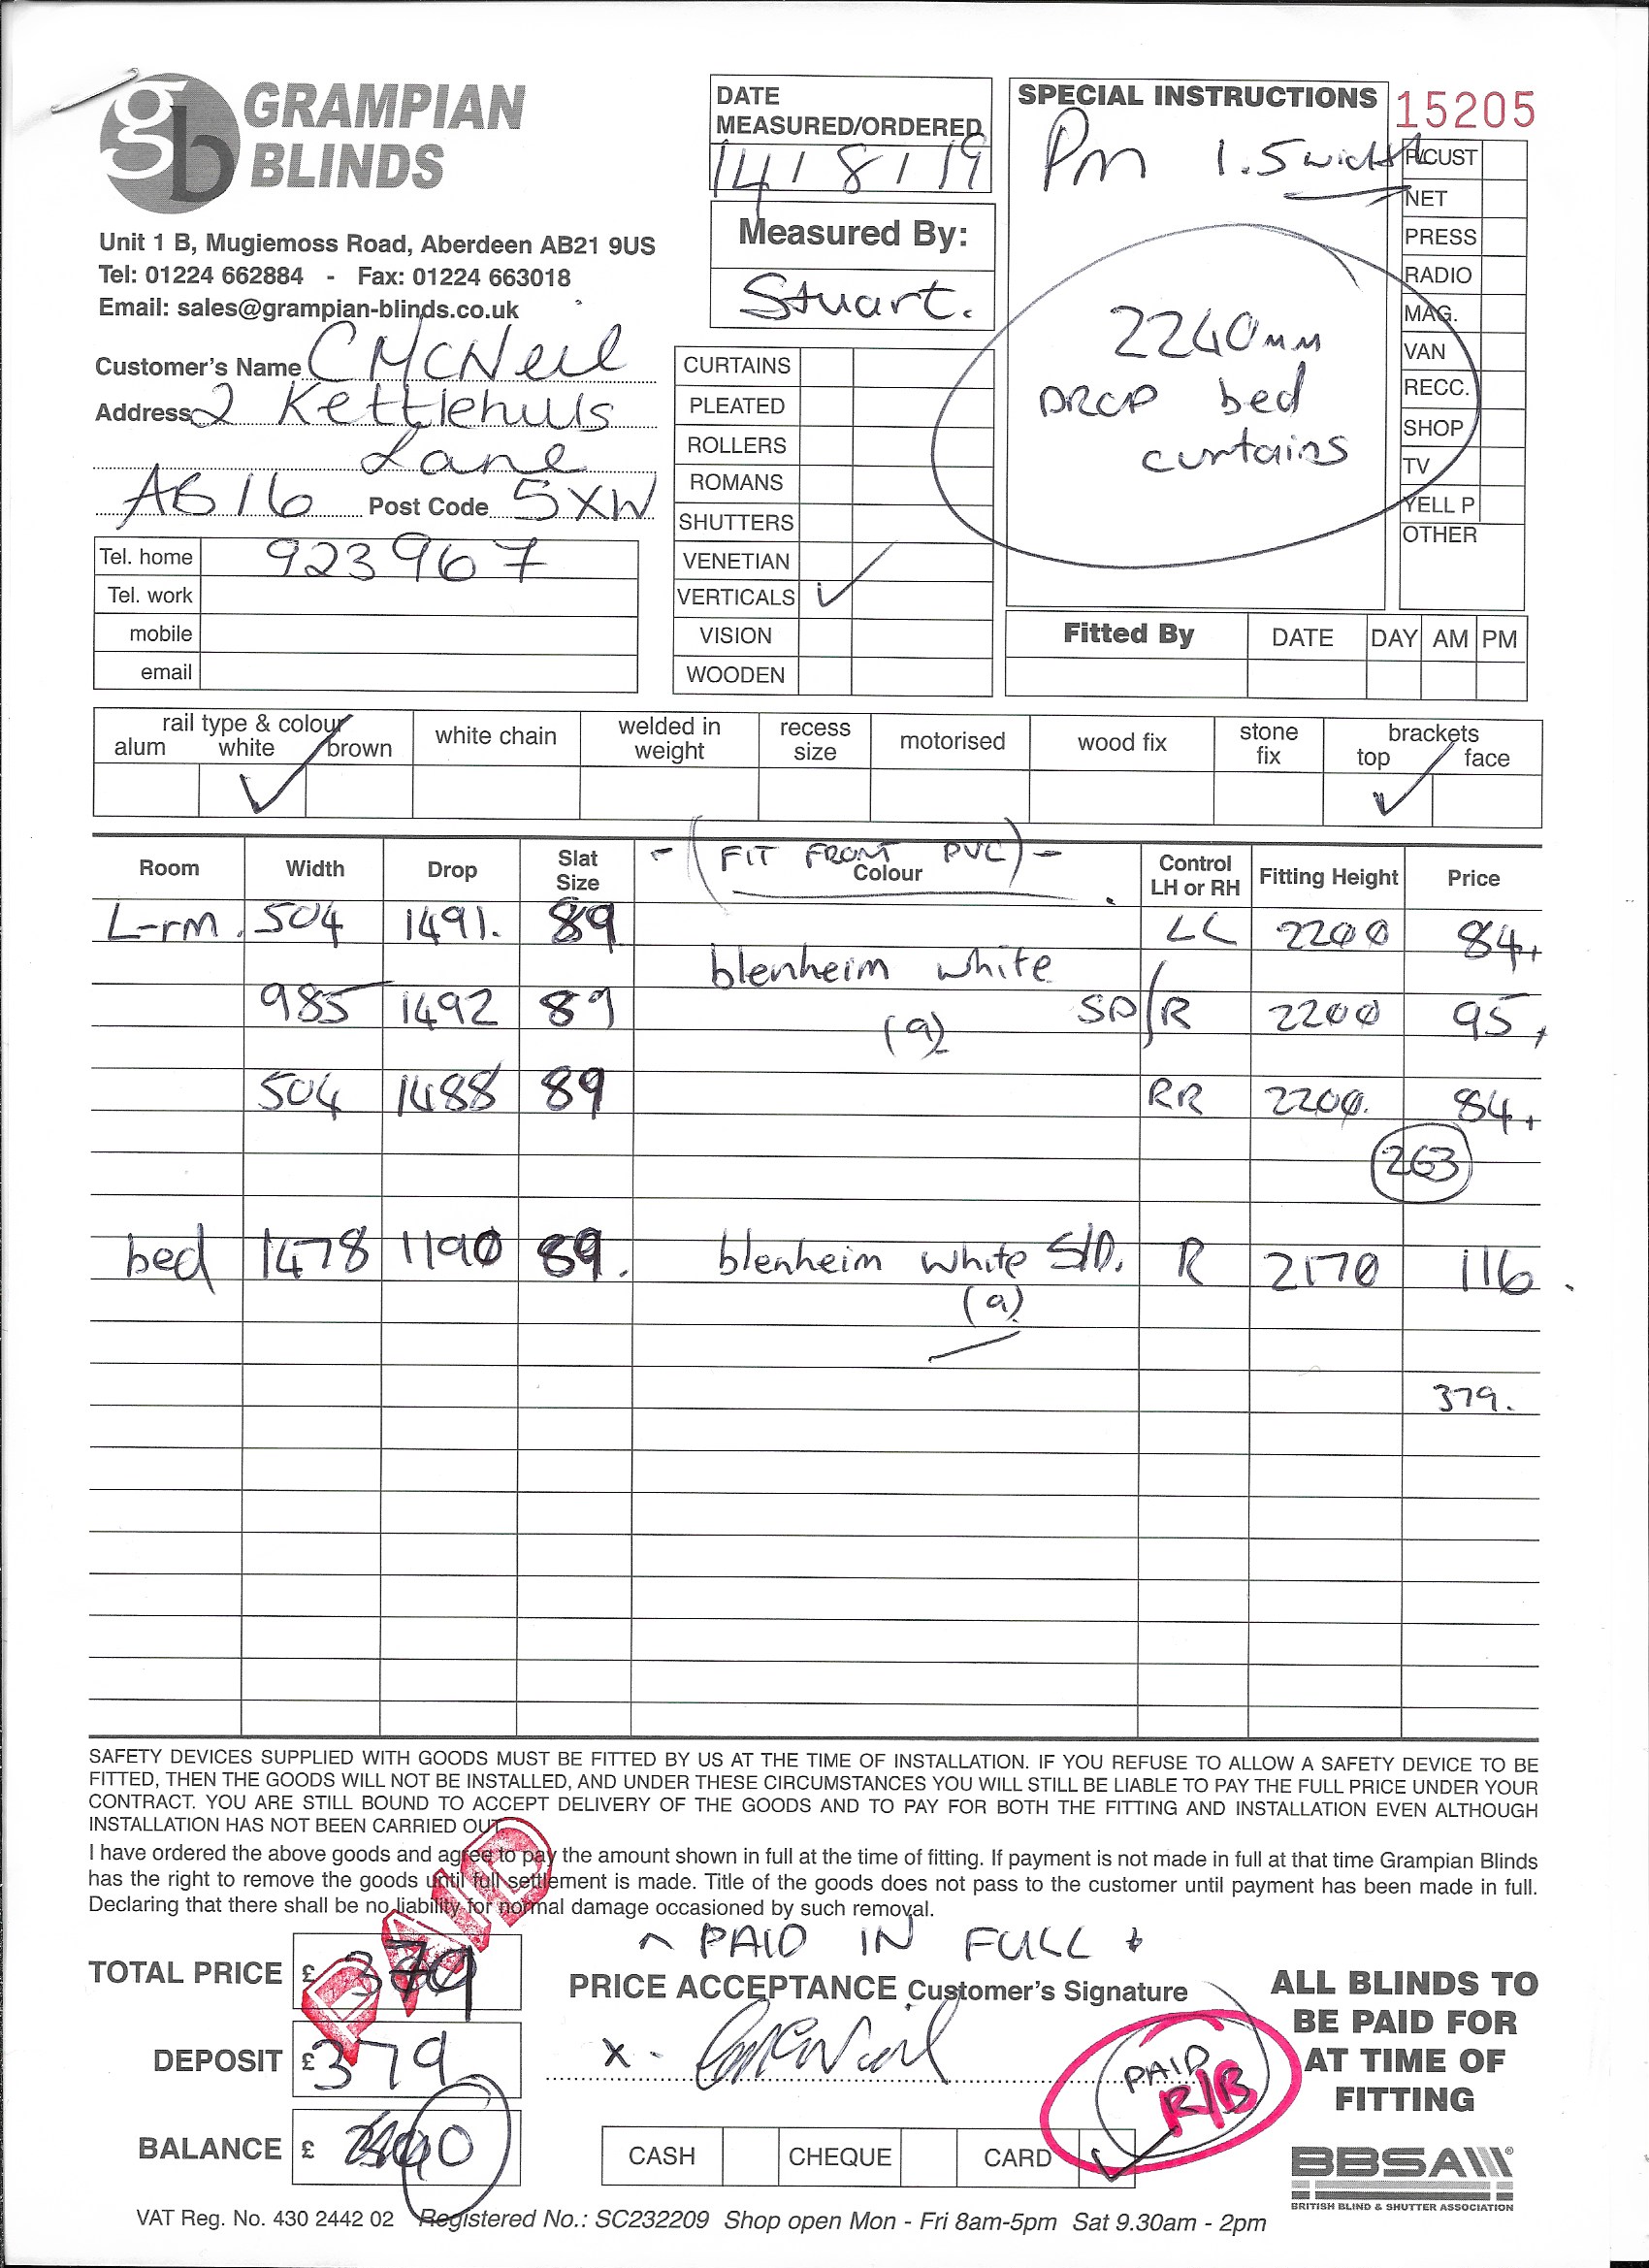 gb GRAMPIAN
BLINDS
Unit 1 B, Mugiemoss Road, Aberdeen AB21 9US
Tel: 01224 662884 - Fax: 01224 663018
Email: sales@grampian-blinds.co.uk
Customer's Name C McNeil
Address 2 Kettlehills
Lane
AB16 Post Code 5XW
Tel. home 923967
Tel. work
mobile
email
DATE
MEASURED/ORDERED
14/8/19
Measured By:
Stuart.
CURTAINS
PLEATED
ROLLERS
ROMANS
SHUTTERS
VENETIAN
VERTICALS ✓
VISION
WOODEN
SPECIAL INSTRUCTIONS
Pm 1.5 width
2240mm
DROP bed
curtains
15205
P/CUST
NET
PRESS
RADIO
MAG.
VAN
RECC.
SHOP
TV
YELL P
OTHER
Fitted By DATE DAY AM PM
rail type & colour
alum white brown white chain welded in weight recess size motorised wood fix stone fix brackets top face
✓ ✓
- (FIT FRONT PVC) -
Room Width Drop Slat Size Colour Control LH or RH Fitting Height Price
L-rm. 504 1491. 89 LL 2200 84.
blenheim white
985 1492 89 (a) SD/R 2200 95.
504 1488 89 RR 2200. 84.
263
bed 1478 1190 89. blenheim white S/D. R 2170 116.
(a)
379.
SAFETY DEVICES SUPPLIED WITH GOODS MUST BE FITTED BY US AT THE TIME OF INSTALLATION. IF YOU REFUSE TO ALLOW A SAFETY DEVICE TO BE
FITTED, THEN THE GOODS WILL NOT BE INSTALLED, AND UNDER THESE CIRCUMSTANCES YOU WILL STILL BE LIABLE TO PAY THE FULL PRICE UNDER YOUR
CONTRACT. YOU ARE STILL BOUND TO ACCEPT DELIVERY OF THE GOODS AND TO PAY FOR BOTH THE FITTING AND INSTALLATION EVEN ALTHOUGH
INSTALLATION HAS NOT BEEN CARRIED OUT.
I have ordered the above goods and agree to pay the amount shown in full at the time of fitting. If payment is not made in full at that time Grampian Blinds
has the right to remove the goods until full settlement is made. Title of the goods does not pass to the customer until payment has been made in full.
Declaring that there shall be no liability for normal damage occasioned by such removal.
PAID
PAID IN FULL
TOTAL PRICE £ 379
PRICE ACCEPTANCE Customer's Signature
DEPOSIT £ 379
x.
PAID
R/B
BALANCE £ 0
CASH CHEQUE CARD ✓
ALL BLINDS TO
BE PAID FOR
AT TIME OF
FITTING
BBSA
BRITISH BLIND & SHUTTER ASSOCIATION
VAT Reg. No. 430 2442 02 Registered No.: SC232209 Shop open Mon - Fri 8am-5pm Sat 9.30am - 2pm